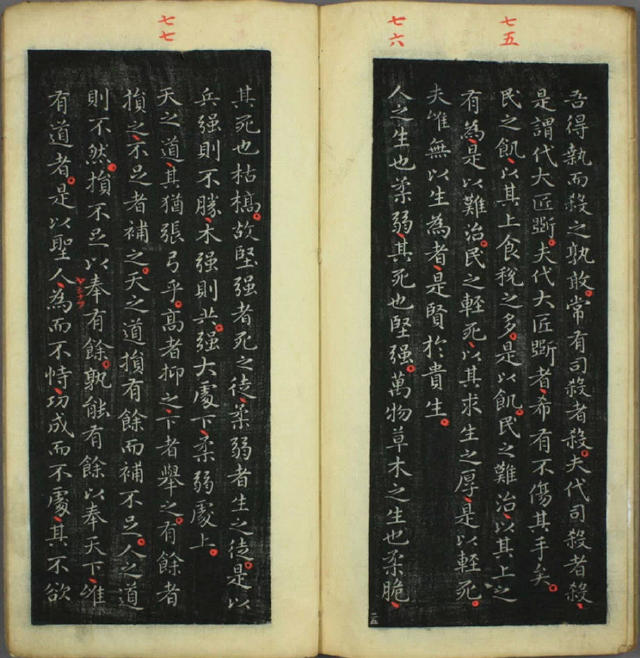 七五
七六
吾得執而殺之孰敢。常有司殺者殺。夫代司殺者殺、
是謂代大匠斲。夫代大匠斲者、希有不傷其手矣。
民之飢、以其上食稅之多。是以飢。民之難治、以其上之
有為、是以難治。民之輕死、以其求生之厚、是以輕死。
夫唯無以生為者、是賢於貴生。
人之生也柔弱、其死也堅强。萬物草木之生也柔脆、
七七
其死也枯槁。故堅强者死之徒、柔弱者生之徒。是以
兵强則不勝、木强則共。强大處下、柔弱處上。
天之道、其猶張弓乎。高者抑之、下者舉之。有餘者
損之、不足者補之。天之道損有餘而補不足、人之道
則不然。損不足以奉有餘。孰能有餘以奉天下、唯
有道者。是以聖人、為而不恃、功成而不處、其不欲